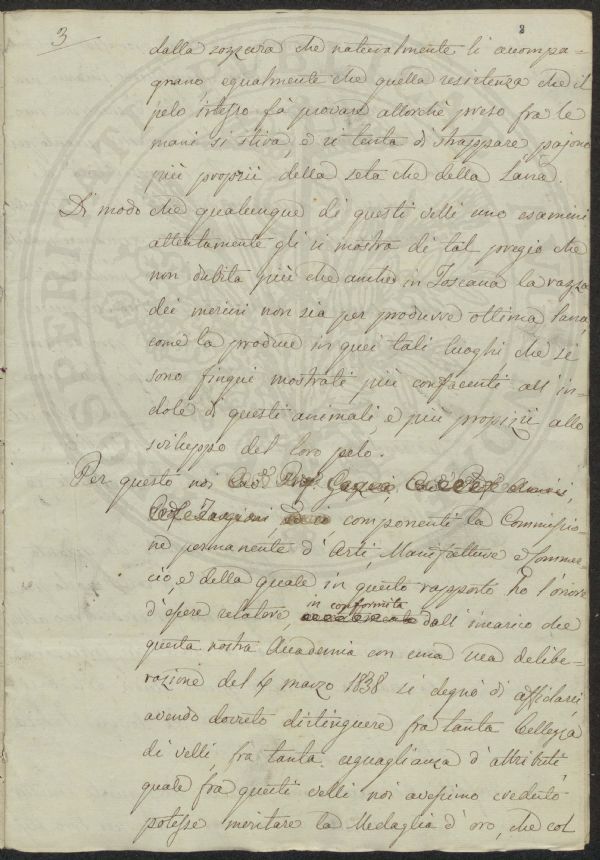 3
8
dalla sozzura che naturalmente li accompa-
gnano, egualmente che quella resistenza che il
pelo istesso fà provare allorchè preso fra le
mani si stira, e si tenta di strappare pajono
più proprii della seta che della Lana.
Di modo che qualunque di questi velli uno esamini
attentamente gli si mostra di tal pregio che
non dubita più che anche in Toscana la razza
dei merini non sia per produrre ottima lana,
come la produce in quei tali luoghi che si
sono finqui mostrati più confacenti all'in-
dole di questi animali e più propizi allo
sviluppo del loro pelo.
Per questo noi
componenti la Commissio-
ne permanente d'Arti, Manifatture e Commer-
cio, e della quale in questo rapporto ho l'onore
d'essere relatore in conformità dall'incarico che
questa nostra Accademia con una sua delibe-
razione del 4 marzo 1838 si degnò di affidarci,
avendo dovuto distinguere fra tanta bellezza
di velli, fra tanta eguaglianza d'attributi,
quale fra questi velli noi avessimo creduto
potesse meritare la Medaglia d'oro, che col